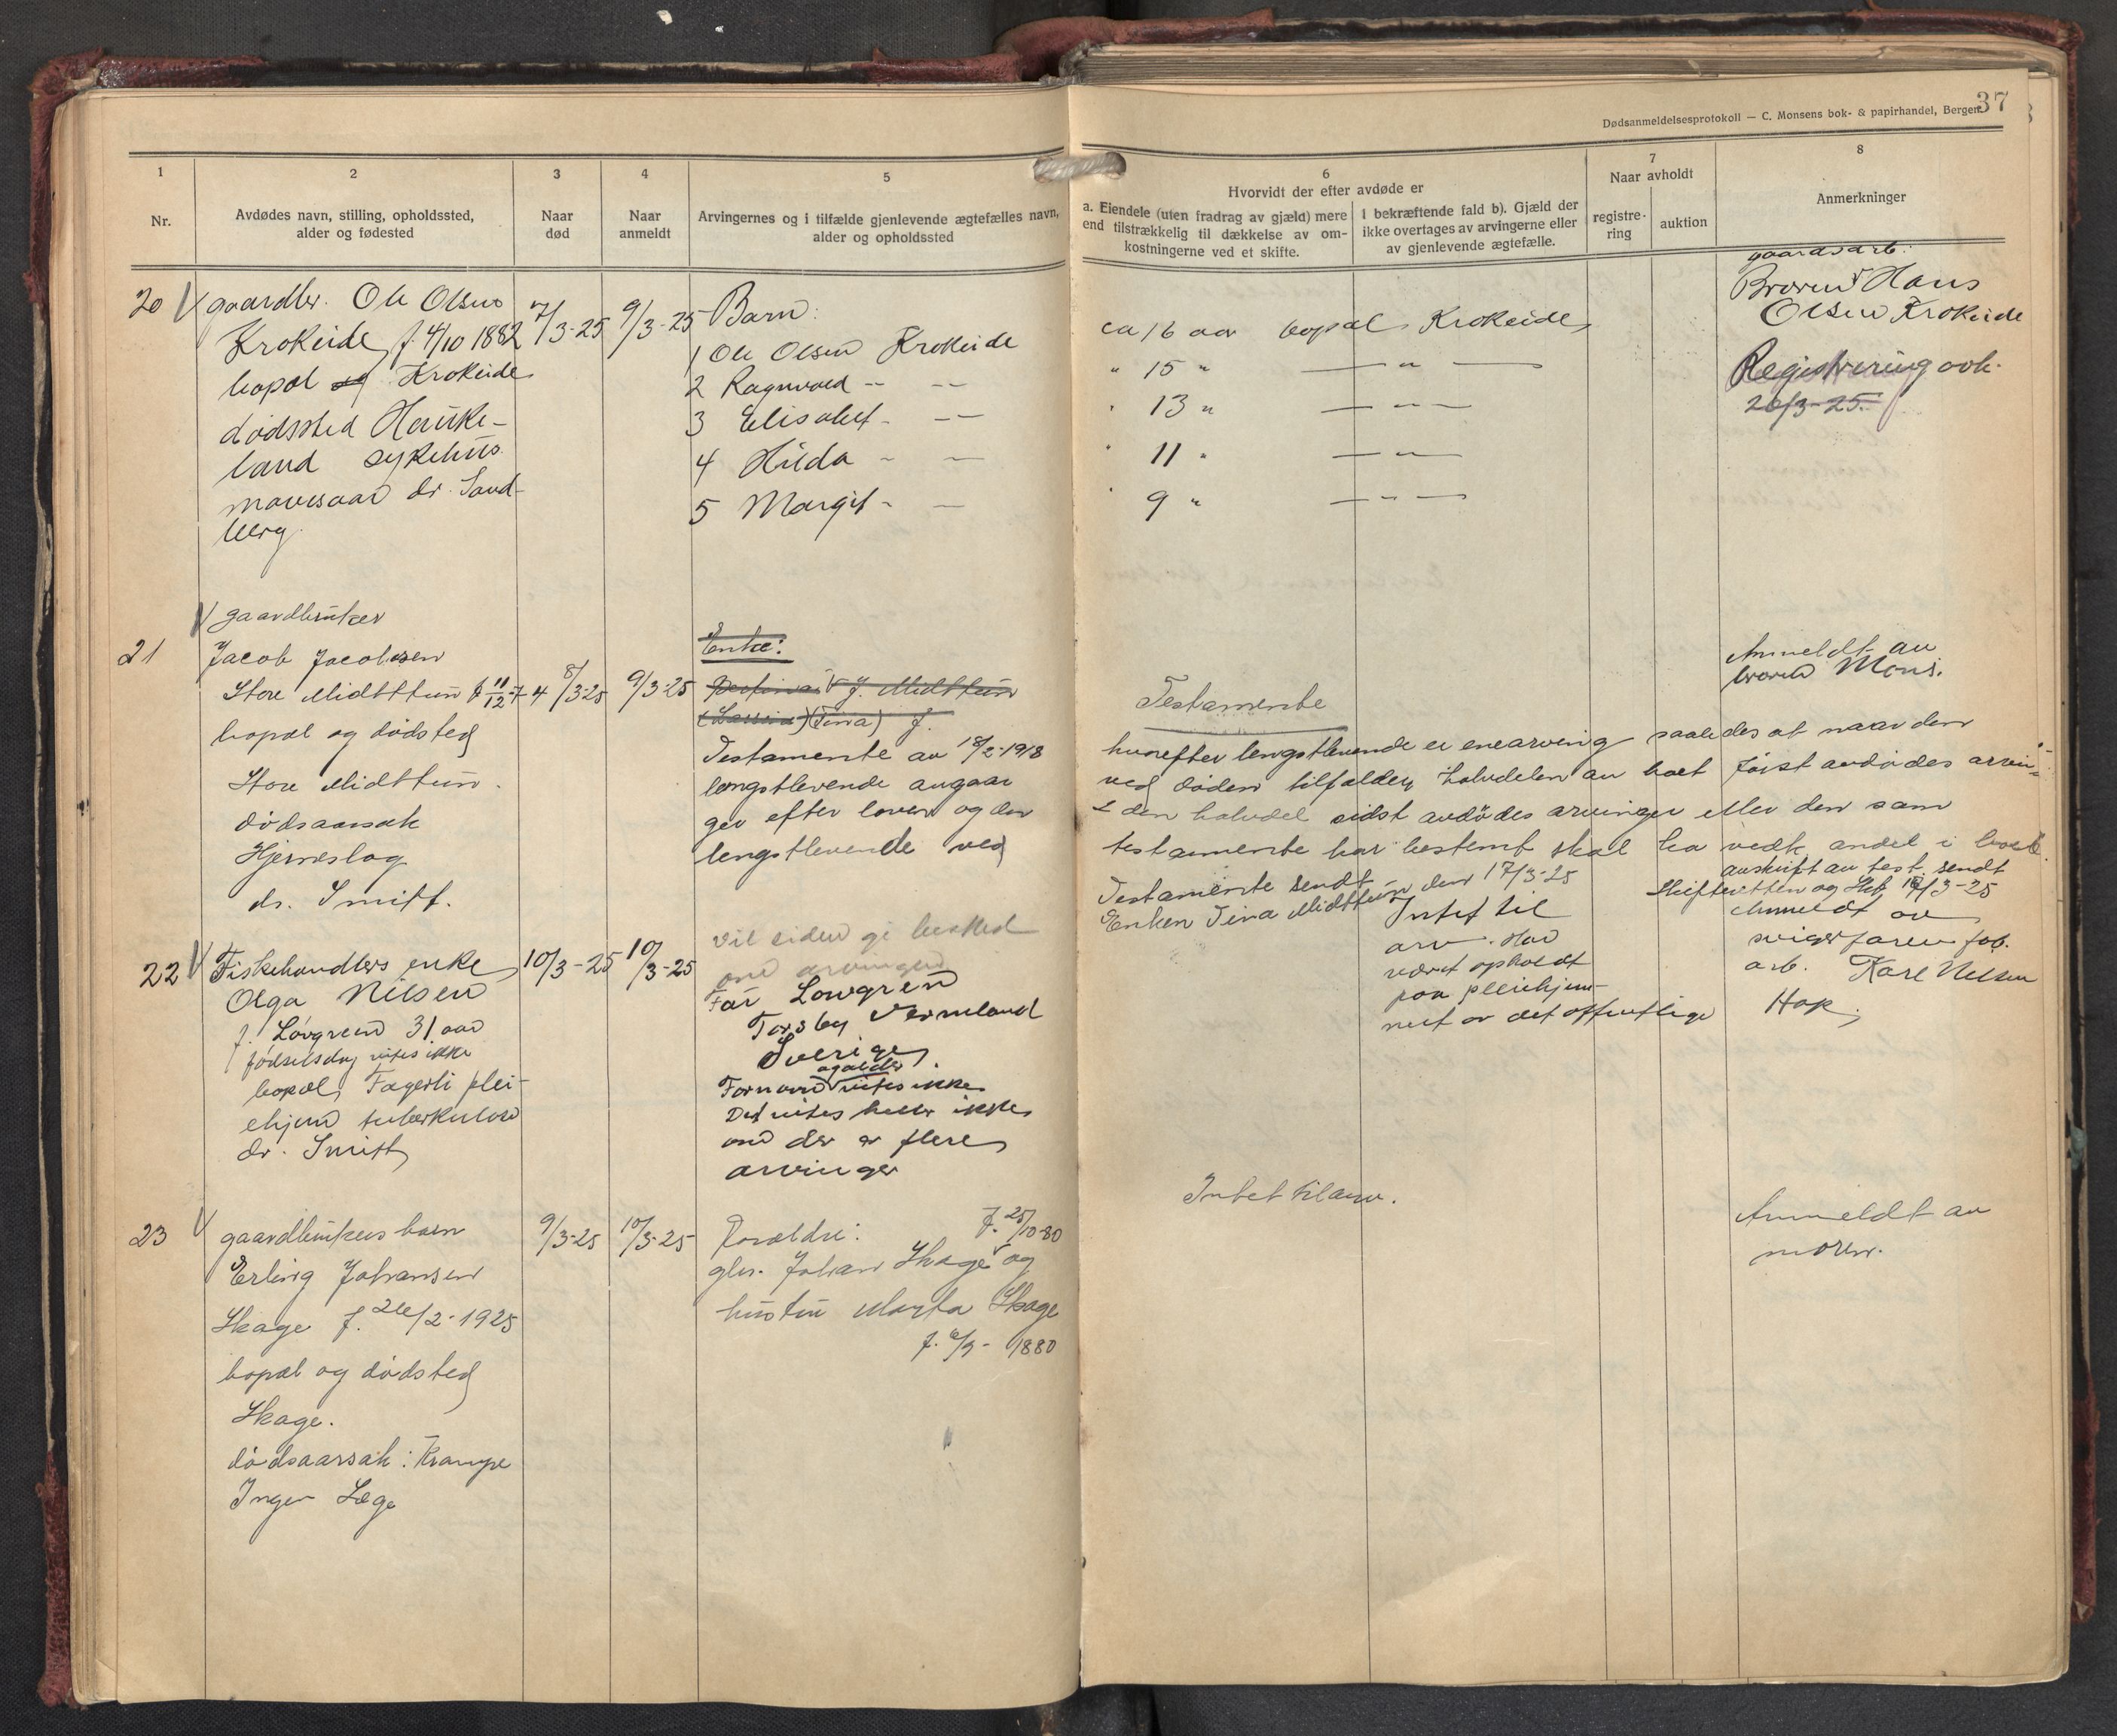 37
Dødsanmeldelsesprotokoll — C. Monsens bok- & papirhandel, Bergen.
1
Nr.
2
Avdødes navn, stilling, opholdssted,
alder og fødested
3
Naar
død
4
Naar
anmeldt
5
Arvingernes og i tilfælde gjenlevende ægtefælles navn,
alder og opholdssted
6
Hvorvidt der efter avdøde er
a. Eiendele (uten fradrag av gjæld) mere
end tilstrækkelig til dækkelse av om-
kostningerne ved et skifte.
I bekræftende fald b). Gjæld der
ikke overtages av arvingerne eller
av gjenlevende ægtefælle.
7
Naar avholdt
registre-
ring
auktion
8
Anmerkninger
20
gaardbr. Ole Olsen
Krokeide f. 4/10 1882
bopæl og Krokeide
dødssted Hauke-
land sykehus
mavesaar dr. Sand-
berg
7/3-25
9/3-25
Barn:
1 Ole Olsen Krokeide
2 Ragnvald -- --
3 Elisabet - --
4 Hilda - -
5 Margit - -
ca 16 aar bopæl Krokeide
" 15 " — " —
" 13 " — " —
" 11 " — " —
" 9 " — " —
gaardsarb.
Broren Hans
Olsen Krokeide
Registrering avh.
26/3-25.
21
gaardbruker
Jacob Jacobsen
Store Midttun f 11/12-74
bopæl og dødsted
Store Midttun.
dødsaarsak
Hjerneslag
dr. Smitt.
8/3-25
9/3-25
Enke:
J. Midttun
(Tina) f.
Testamente av 18/2-1918
lengstlevende angaar
ger efter loven og den
lengstlevende ved
Testamente
hvorefter lengstlevende er enearving saaledes at naar den
ved døden tilfalder halvdelen av boet først avdødes arvin-
den halvdel sidst avdødes arvinger eller den sam
testamente har bestemt skal ha vedk. andel i boet.
Testamente sendt
Enken Tina Midttun den 17/3-25
Anmeldt av
broren Mons.
avskrift av test. sendt
Skifteretten og 17/3-25
22
Fiskehandlers enke
Olga Nilsen
f. Løvgreen 31 aar
fødselsdag vites ikke
bopæl Fagerli plei-
ehjem tuberkulose
dr. Smitt
10/3-25
10/3-25
Vil siden gi besked
om arvingen
Far Lowgren
Torsby Vermland
Sverige.
Fornavn og alder vites ikke
Det vites heller ikke
om der er flere
arvinger
Intet til
arv. Har
været opholdt
paa pleiehjem-
met av det offentlige
Anmeldt av
svigerfaren fab.
arb. Karl Nilsen
Hop
23
gaardbrukers barn
Erling Johansen
Skage f. 26/2-1925
bopæl og dødsted
Skage.
dødsaarsak: Krampe
Ingen Læge
9/3-25
10/3-25
Forældre:
f. 25/10-80
gbr. Johan Skage og
hustru Marta Skage
f. 6/3-1880
Intet til arv.
Anmeldt av
moren.